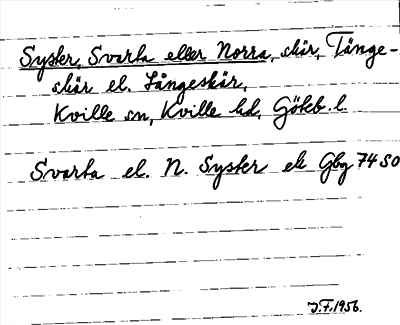 Syster, Svarta eller Norra, skär, Tånge-
skär el. Långeskär,
Kville sn, Kville hd, Göteb. l.
Svarta el. N. Syster ek Gbg 74 SO
J.F. 1956.